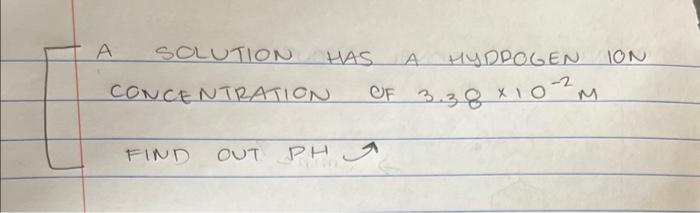 A SOLUTION HAS A HYDROGEN ION
CONCENTRATION OF 3.38 × 10⁻² M
FIND OUT PH